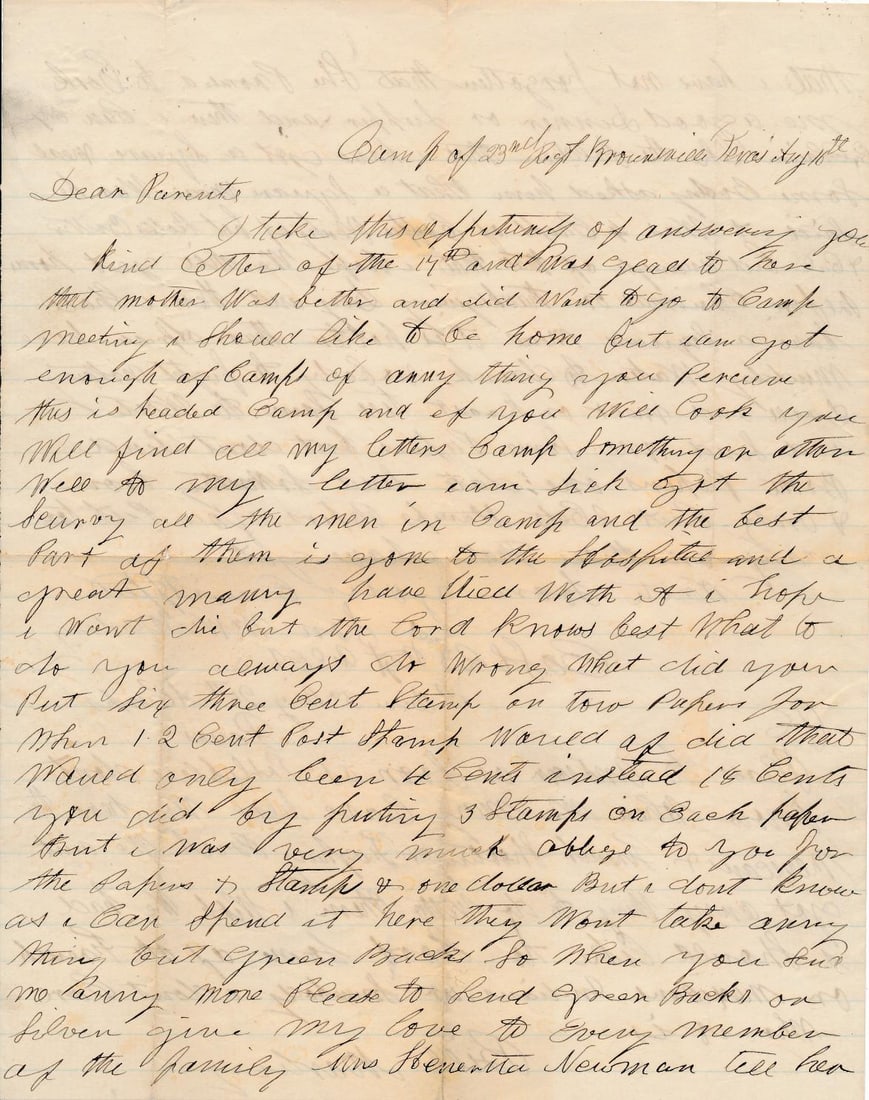 Camp of 23nd Regt Brownsville Texas Aug
Dear Parents
I take this oppitunity of answering you
kind letter of the 17th and Was glad to here
that mother Was better and did Want to go to Camp
meeting i Should like to be home but iam got
enough of Camps of anny thing you Percieve
this is headed Camp and ef you Will Look you
Will find all my letters Camp Something or other
Well to my letter iam Sick got the
Scurvy all the men in Camp and the best
Part of them is gone to the Hospital and a
great manny have died With it i hope
i Wont die but the Lord Knows best What to
do you always do Wrong What did you
Put Six three Cent Stamp on tow Papers for
When 1-2 Cent Post Stamp Would of did that
Would only been 4 Cents instead 18 Cents
you did by puting 3 Stamps on Each paper
But i Was very much oblige to you for
the Papers & Stamps & one dollar But i dont Know
as i Can Spend it here they Wont take anny
thing but Green Backs So When you Send
me anny more Please to Send Green Backs or
Silver give my love to Every member
of the family Mrs Newman tell her